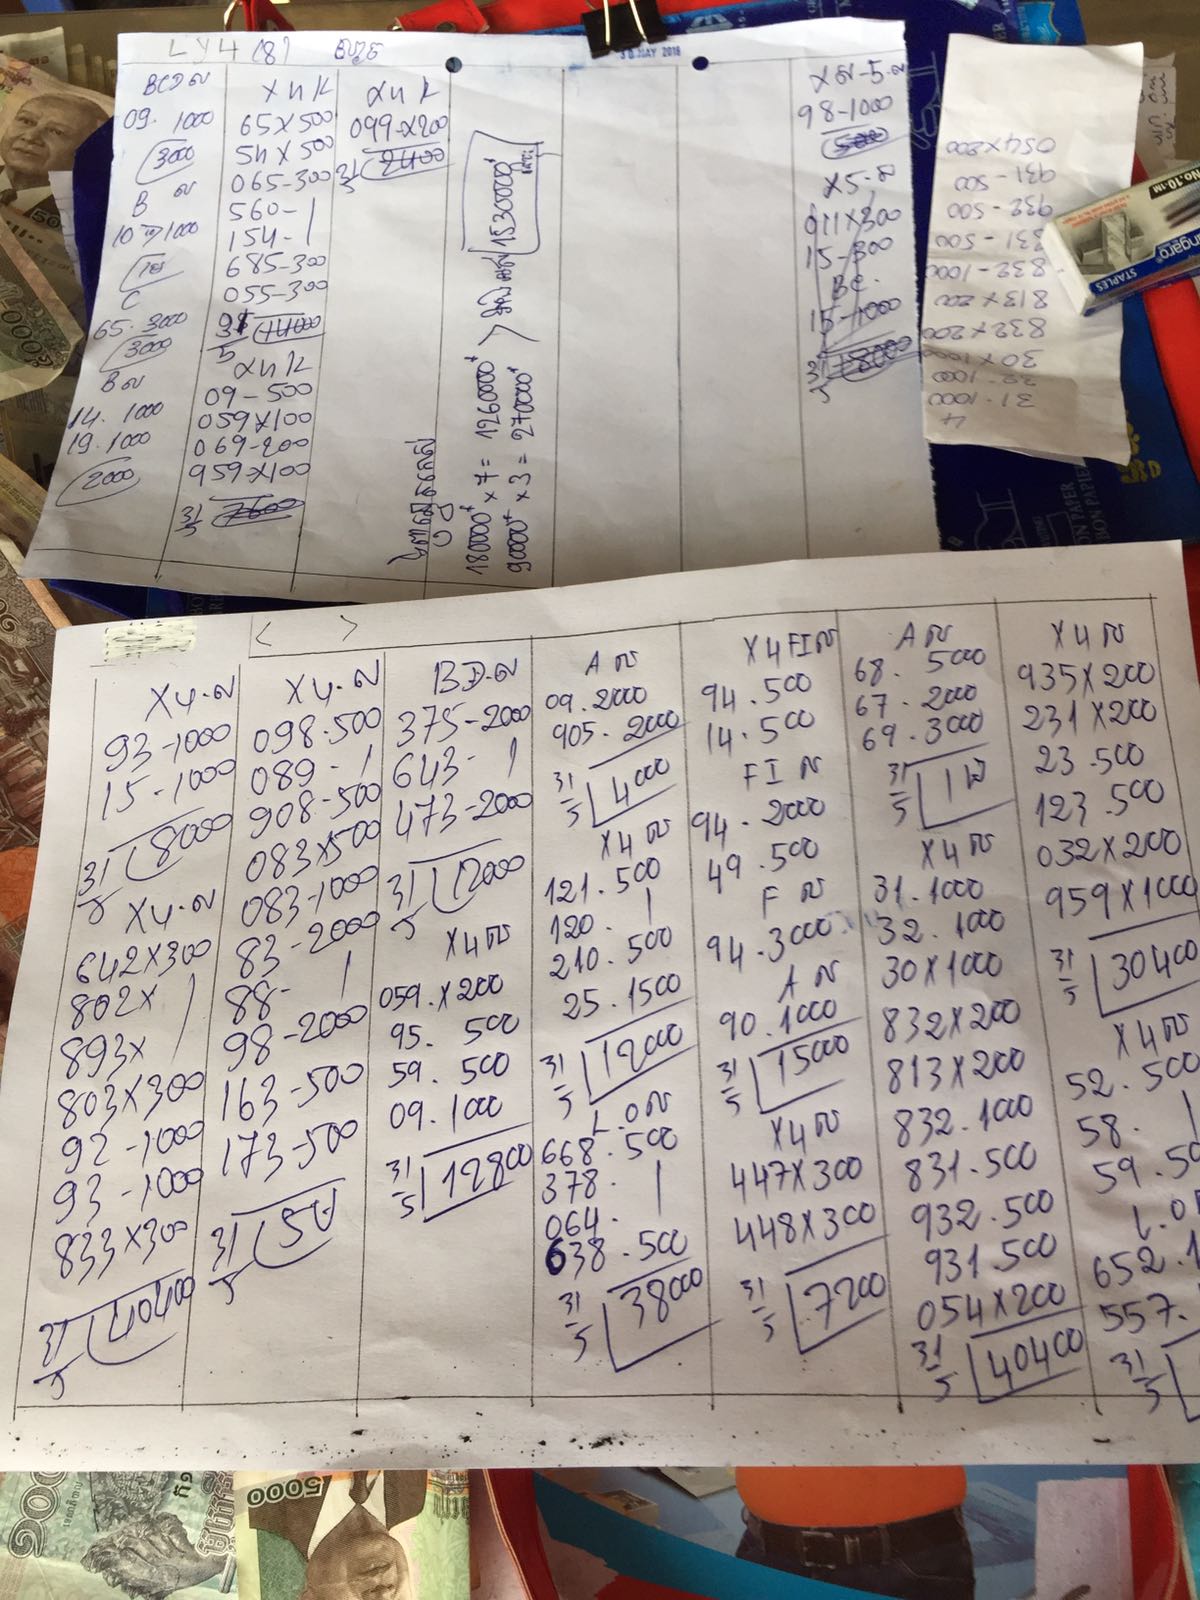 LY4 (8)
30 MAY 2018
BCD
09. 1000
3000
B
10 1000
C
65. 3000
3000
B
14. 1000
19. 1000
2000
X4K
65X500
54X500
065-300
560- |
154- |
685-300
055-300
X4K
09-500
059X100
069-200
959X100
31/5 7600
X4K
099-X200
180000 x 7 = 1260000
90000 x 3 = 270000
1530000
98-1000
5000
X5-
011X300
15-300
BC.
15-1000
31/5 8000
4
31-1000
32-1000
30X1000
832X200
813X200
832-1000
831-500
932-500
931-500
054X200
No.10-1M
STAPLES
X4.ល
93-1000
15-1000
31/5 8000
X4.ល
642X300
802X |
893X |
803X300
92-1000
93-1000
833X300
31/5 40400
X4.ល
098-500
089- |
908-500
083X500
083-1000
83-2000
88- |
98-2000
163-500
173-500
31/5
BD.ល
375-2000
643- |
473-2000
31/5 12000
X4ល
059.X200
95. 500
59. 500
09. 1000
31/5 12800
A ល
09.2000
905.2000
31/5 4000
X4ល
121.500
120. |
210.500
25.1500
31/5 12000
L.0ល
668.500
378. |
064. |
638.500
31/5 38000
X4FIល
94.500
14.500
FI ល
94.2000
49.500
F ល
94.3000
A ល
90.1000
31/5 15000
X4ល
447X300
448X300
31/5 7200
A ល
68. 5000
67. 2000
69. 3000
31/5
X4ល
31.1000
32.1000
30X1000
832X200
813X200
832.1000
831.500
932.500
931.500
054X200
31/5 40400
X4ល
935X200
231X200
23.500
123.500
032X200
959X1000
31/5 30400
X4ល
52.500
58. |
59.50
652.1
557.
31/5
5000